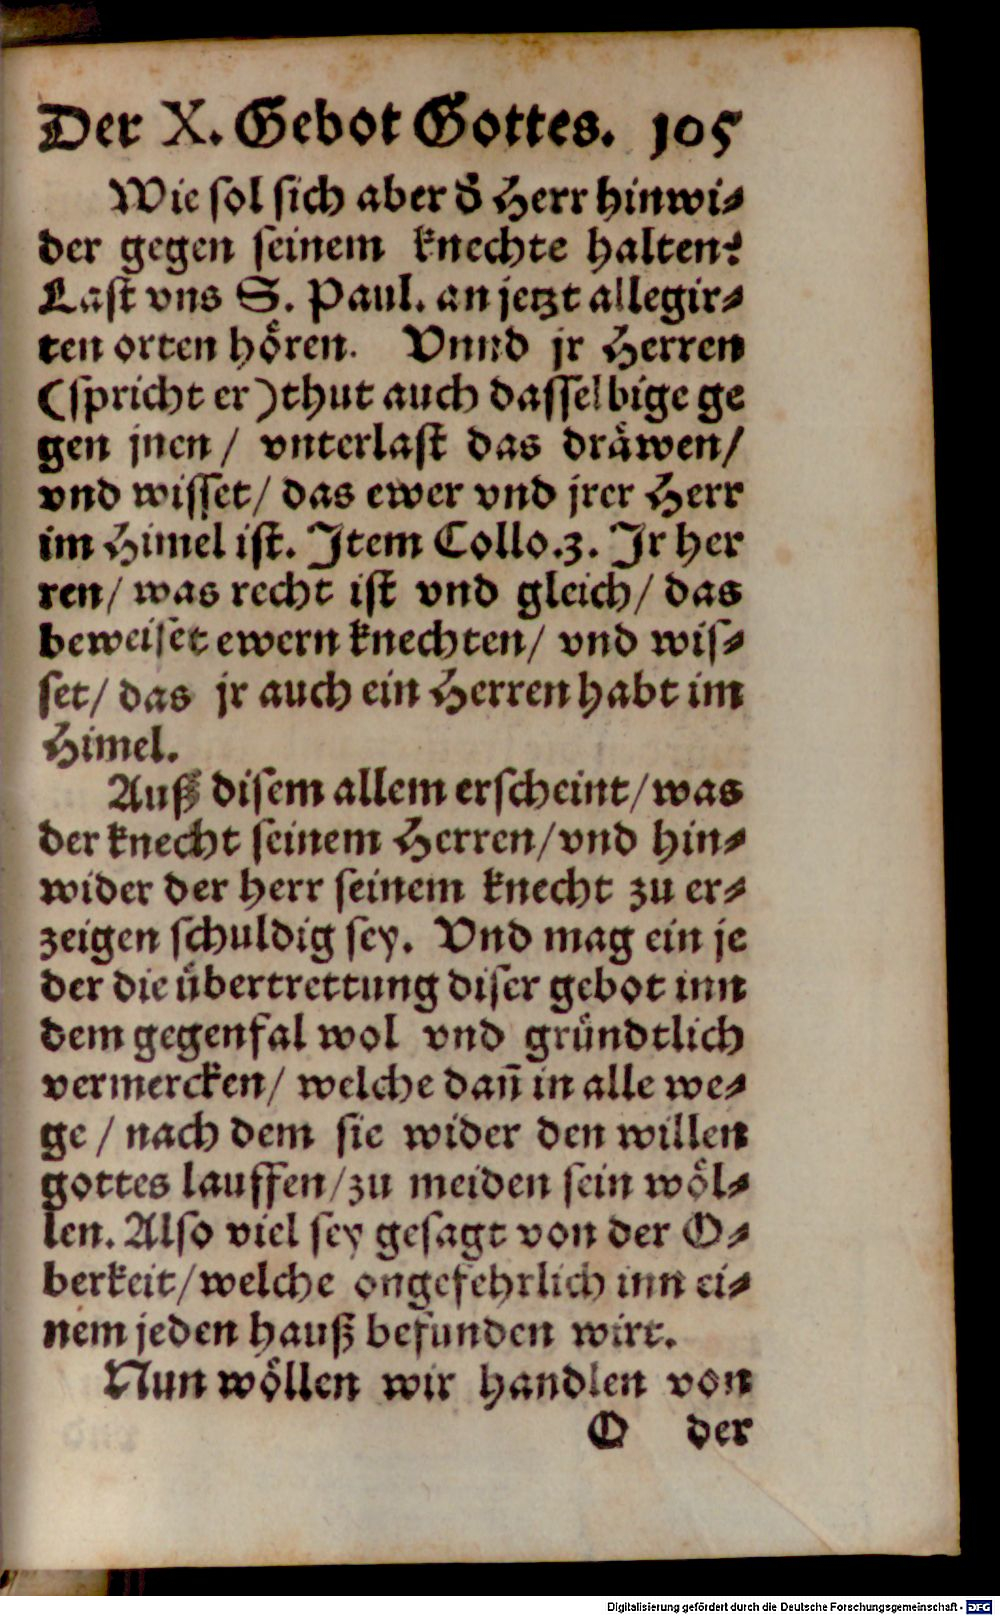 Der X. Gebot Gottes. 105
Wie sol sich aber d̄ Herr hinwi⸗
der gegen seinem knechte halten?
Last vns S. Paul. an jetzt allegir⸗
ten orten hoͤren. Vnnd jr Herren
(spricht er) thut auch dasselbige ge
gen jnen / vnterlast das draͤwen /
vnd wisset / das ewer vnd jrer Herr
im Himel ist. Item Collo. 3. Ir her
ren / was recht ist vnd gleich / das
beweiset ewern knechten / vnd wis⸗
set / das jr auch ein Herren habt im
Himel.
Auß disem allem erscheint / was
der knecht seinem Herren / vnd hin⸗
wider der herr seinem knecht zu er⸗
zeigen schuldig sey. Vnd mag ein je
der die uͤbertrettung diser gebot inn
dem gegenfal wol vnd gruͤndtlich
vermercken / welche dañ in alle we⸗
ge / nach dem sie wider den willen
gottes lauffen / zu meiden sein woͤl⸗
len. Also viel sey gesagt von der O⸗
berkeit / welche ongefehrlich inn ei⸗
nem jeden hauß befunden wirt.
Nun woͤllen wir handlen von
O der
Digitalisierung gefördert durch die Deutsche Forschungsgemeinschaft - DFG